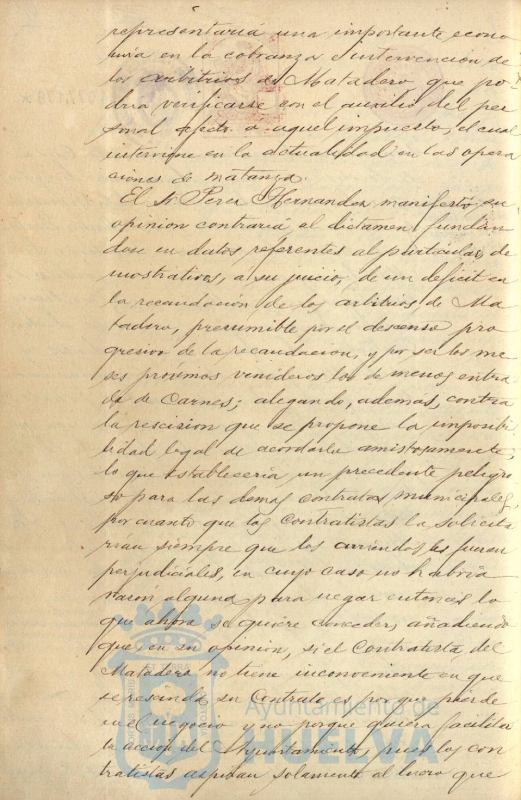 representaria una importante econo
mia en la cobranza é intervencion de
los arbitrios de Matadero que po
dria verificarse con el auxilio del per
sonal afecto a aquel impuesto, el cual
interviene en la actualidad en las opera
ciones de matanza.
El Sr. Perez Hernandez manifestó su
opinion contraria al dictamen fundán
dose en datos referentes al particular, de
mostrativos, a su juicio, de un deficit en
la recaudación de los arbitrios de Ma
tadero, presumible por el descenso pro
gresivo de la recaudacion, y por ser los me
ses proximos venideros los de menos entra
da de Carnes; alegando, ademas, contra
la rescision que se propone la imposibi
lidad legal de acordarla amistosamente,
lo que estableceria un precedente peligro
so para los demas contratos municipales,
por cuanto que los contratistas la solicita
rian siempre que los arriendos les fueran
perjudiciales, en cuyo caso no habria
razon alguna para negar entonces lo
que ahora se quiere conceder, añadiendo
que en su opinion, si el Contratista del
Matadero no tiene inconveniente en que
se rescinda su Contrato es porque pierde
en el negocio y no porque quiera facilitar
la acción del Ayuntamiento, pues los con
tratistas aspiran solamente al lucro que
Ayuntamiento de
HUELVA